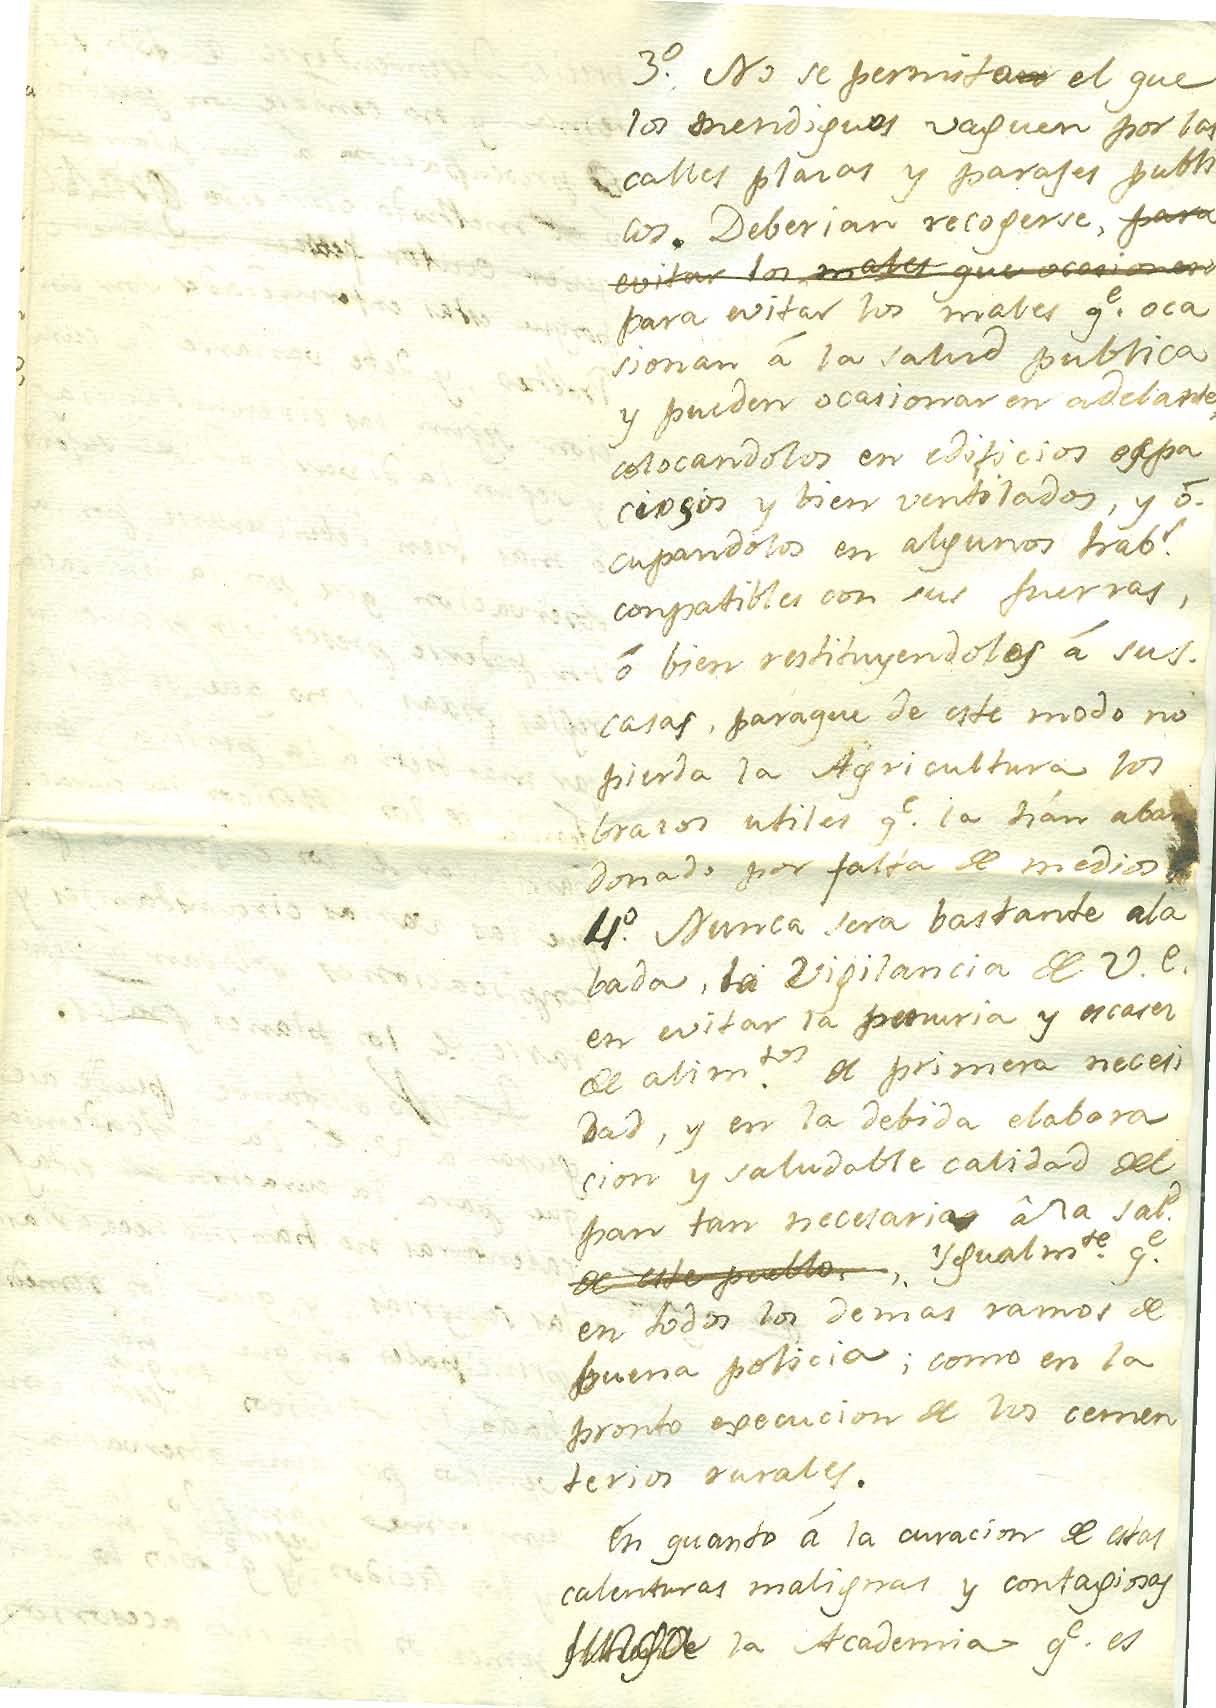 3º. No se permita el que
los mendigos vaguen por las
calles plazas y parages publi
cos. Deberian recogerse, para
evitar los males que ocasionan
para evitar los males qᵉ. oca
sionan á la salud publica
y pueden ocasionar en adelante,
colocandolos en edificios espa
ciosos y bien ventilados, y ó-
cupandolos en algunos trabˢ.
conpatibles con sus fuerzas,
ó bien restituyendolos á sus.
casas, paraque de este modo no
pierda la Agricultura los
brazos utiles qᵉ. la hán aban
donado por falta de medios
4º. Nunca sera bastante ala
bada, la vigilancia de V.E.
en evitar la penuria y escasez
de alimᵗᵒˢ. de primera necesi
dad, y en la debida elabora
cion y saludable calidad del
pan tan necesaria â la salᵈ.
de este pueblo, igualmᵗᵉ. qᵉ.
en todos los demas ramos de
buena policia; como en la
pronto execucion de los cemen
terios rurales.
En quanto á la curacion de estas
calenturas malignas y contagiosas
juzga la Academia qᵉ. es